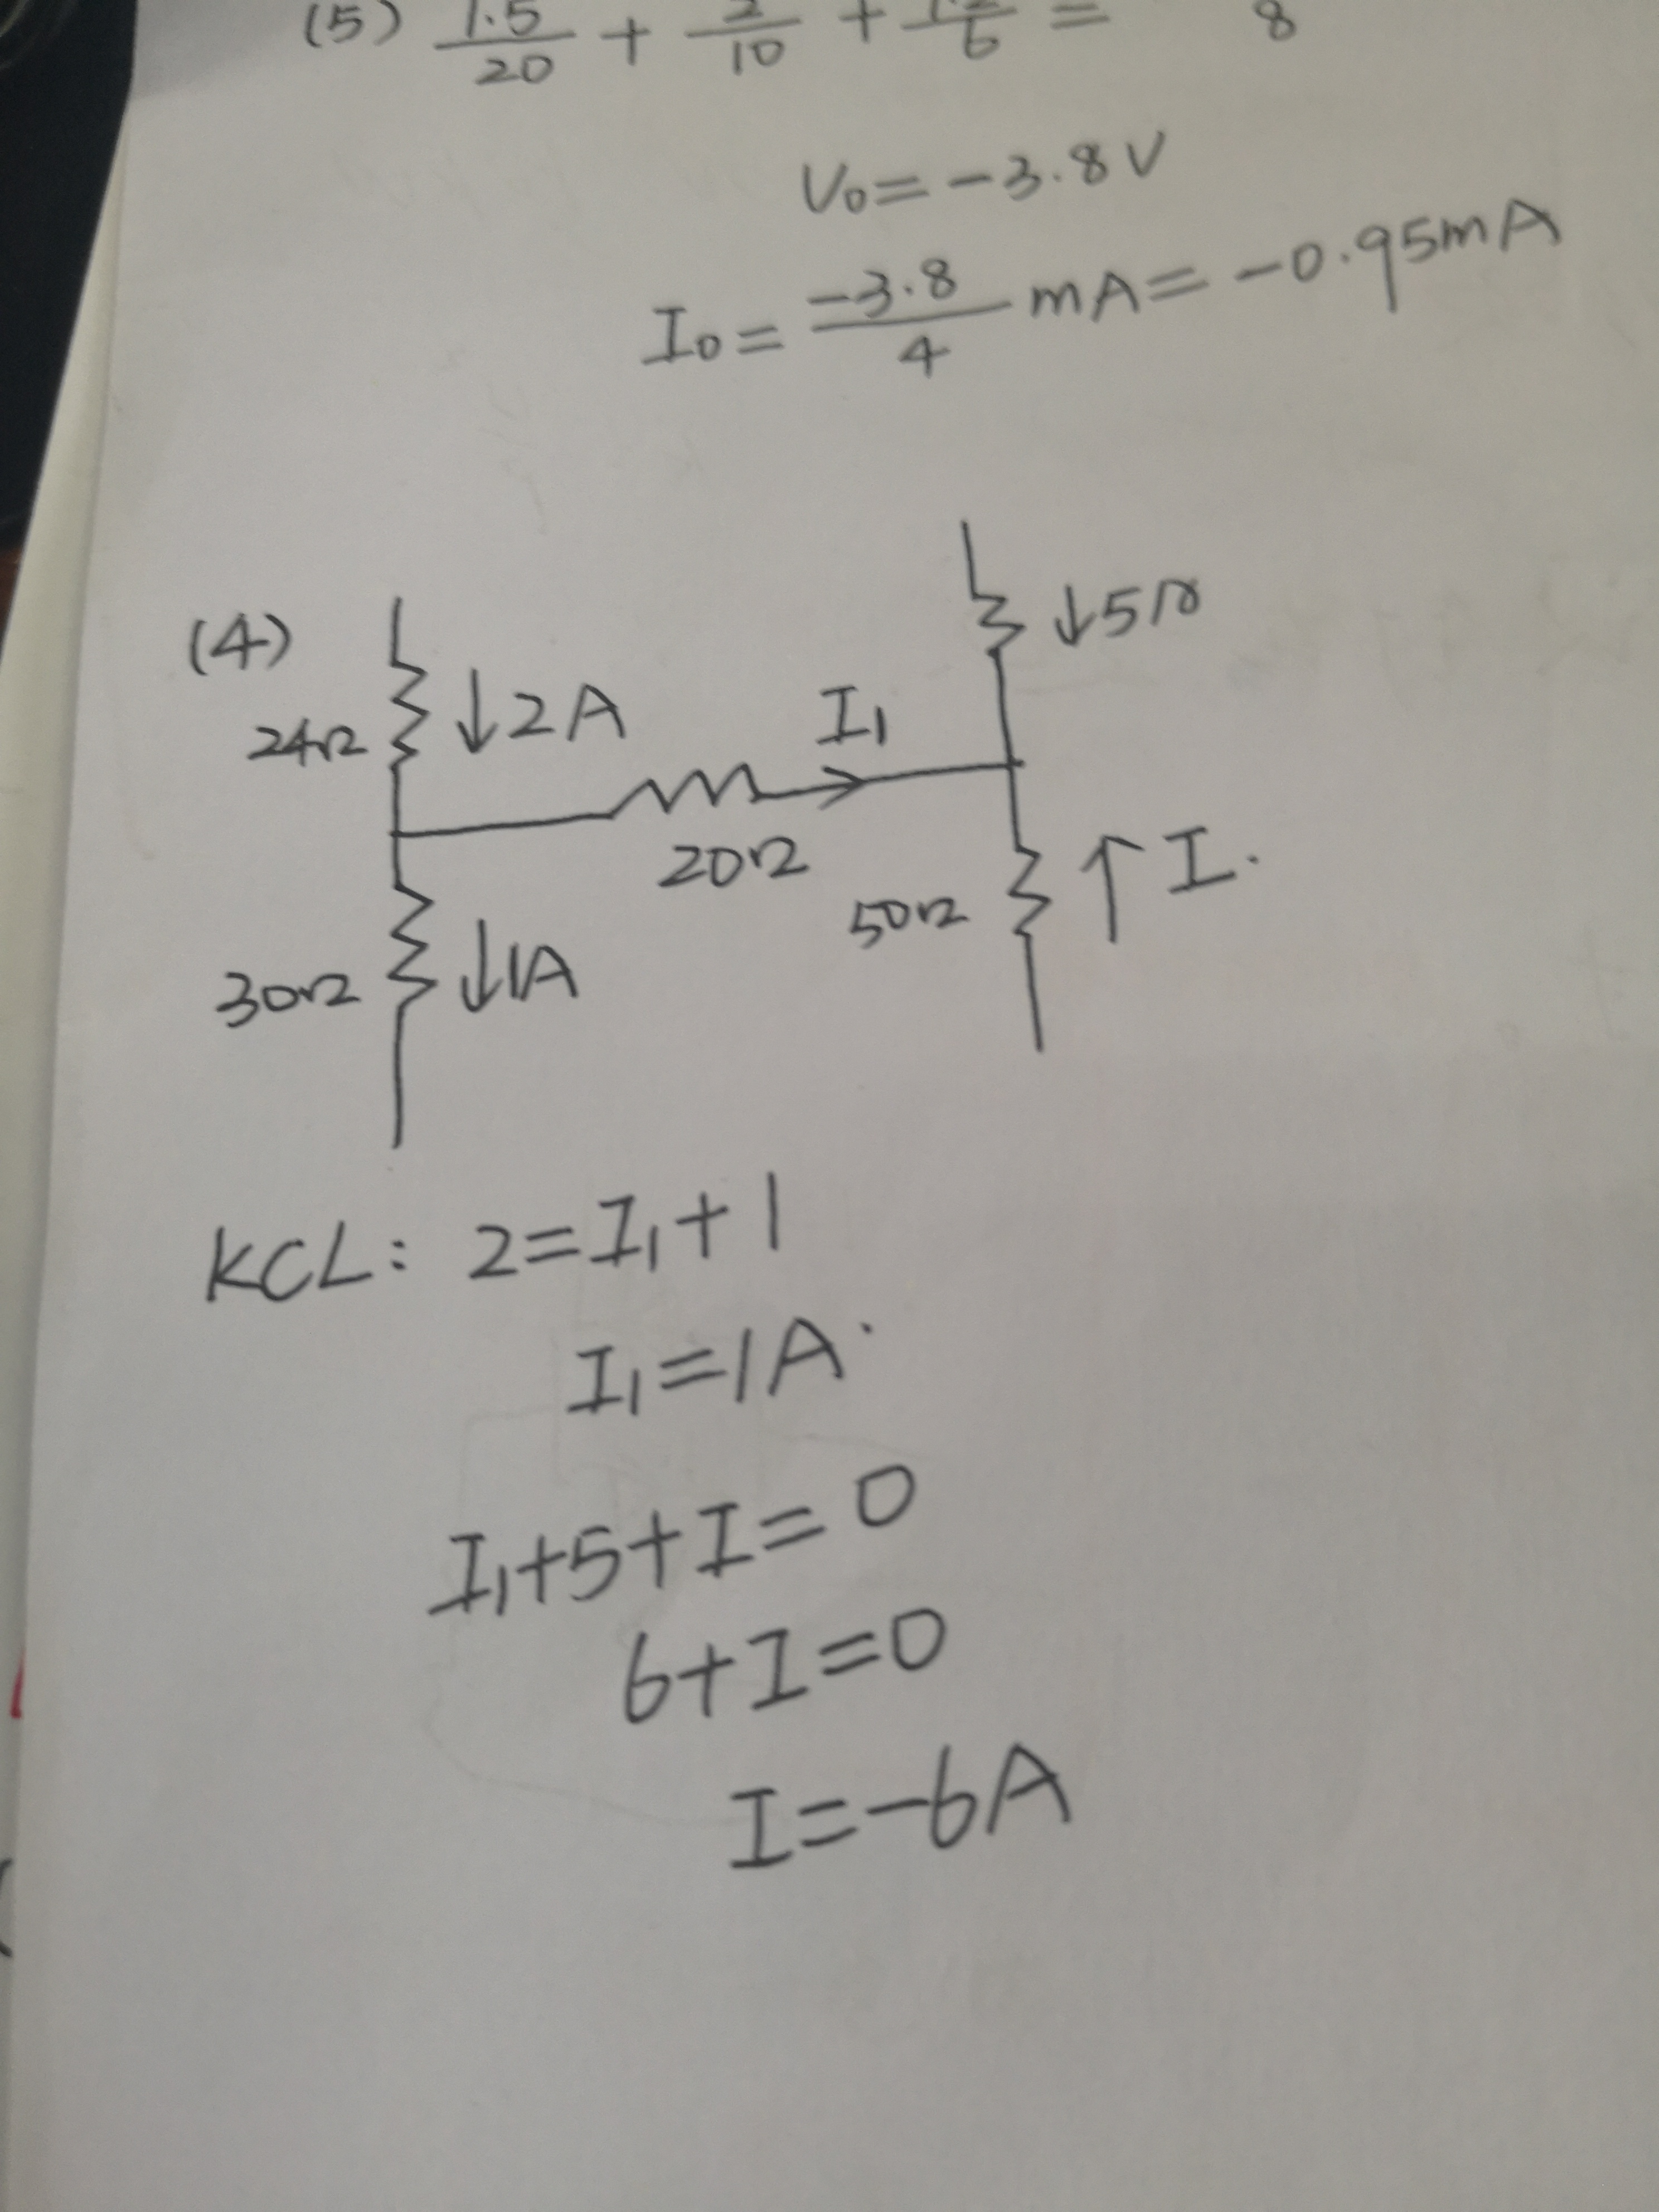 (5) 1.5/20 + 2/10 + /6 = 8
V₀=-3.8V
I₀= -3.8/4 mA= -0.95mA
(4)
↓5Ω
24Ω ↓2A I₁
20Ω
50Ω ↑I.
30Ω ↓1A
KCL: 2=I₁+1
I₁=1A.
I₁+5+I=0
6+I=0
I=-6A